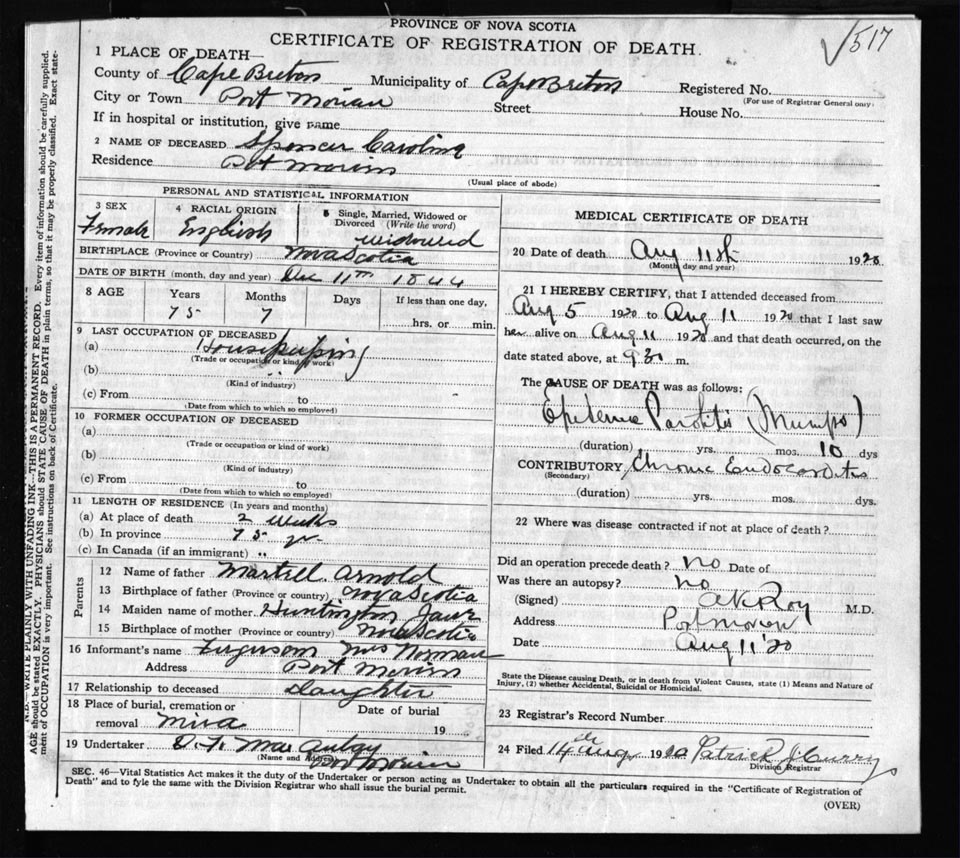 PROVINCE OF NOVA SCOTIA
CERTIFICATE OF REGISTRATION OF DEATH.
√517
1 PLACE OF DEATH—
County of Cape Breton Municipality of Cape Breton Registered No.
(For use of Registrar General only)
City or Town Port Morien Street House No.
If in hospital or institution, give name
2 NAME OF DECEASED Spencer Caroline
Residence Port Morien
(Usual place of abode)
PERSONAL AND STATISTICAL INFORMATION
3 SEX 4 RACIAL ORIGIN 5 Single, Married, Widowed or
Divorced (Write the word)
Female English widowed
BIRTHPLACE (Province or Country) Nova Scotia
DATE OF BIRTH (month, day and year) Dec 11th 1844
8 AGE Years Months Days If less than one day,
75 7 hrs. or min.
9 LAST OCCUPATION OF DECEASED
(a) Housekeeping
(Trade or occupation or kind of work)
(b)
(Kind of industry)
(c) From to
(Date from which to which so employed)
10 FORMER OCCUPATION OF DECEASED
(a)
(Trade or occupation or kind of work)
(b)
(Kind of industry)
(c) From to
(Date from which to which so employed)
11 LENGTH OF RESIDENCE (In years and months)
(a) At place of death 2 weeks
(b) In province 75 yr
(c) In Canada (if an immigrant) "
Parents
12 Name of father Martell Arnold
13 Birthplace of father (Province or country) Nova Scotia
14 Maiden name of mother Huntington Jane
15 Birthplace of mother (Province or country) Nova Scotia
16 Informant's name Ferguson Mrs Norman
Address Port Morien
17 Relationship to deceased Daughter
18 Place of burial, cremation or Date of burial
removal Mira 19
19 Undertaker
(Name and Address) Port Morien
MEDICAL CERTIFICATE OF DEATH
20 Date of death Aug 11th 1920
(Month day and year)
21 I HEREBY CERTIFY, that I attended deceased from
Aug 5 1920 to Aug 11 1920 that I last saw
her alive on Aug 11 1920 and that death occurred, on the
date stated above, at 930 m.
The CAUSE OF DEATH was as follows:
Epidemic Parotitis (Mumps)
(duration) yrs. mos. 10 dys
CONTRIBUTORY Chronic Endocarditis
(Secondary)
(duration) yrs. mos. dys.
22 Where was disease contracted if not at place of death?
Did an operation precede death? no Date of
Was there an autopsy? no
(Signed) Roy M.D.
Address Port Morien
Date Aug 11 '20
State the Disease causing Death, or in death from Violent Causes, state (1) Means and Nature of
Injury, (2) whether Accidental, Suicidal or Homicidal.
23 Registrar's Record Number
24 Filed 14th Aug 1920 Patrick J. Curry
Division Registrar
SEC. 46—Vital Statistics Act makes it the duty of the Undertaker or person acting as Undertaker to obtain all the particulars required in the "Certificate of Registration of
Death" and to fyle the same with the Division Registrar who shall issue the burial permit.
(OVER)
N.B.—WRITE PLAINLY WITH UNFADING INK—THIS IS A PERMANENT RECORD. Every item of information should be carefully supplied.
AGE should be stated EXACTLY. PHYSICIANS should STATE CAUSE OF DEATH in plain terms, so that it may be properly classified. Exact state-
ment of OCCUPATION is very important. See instructions on back of Certificate.